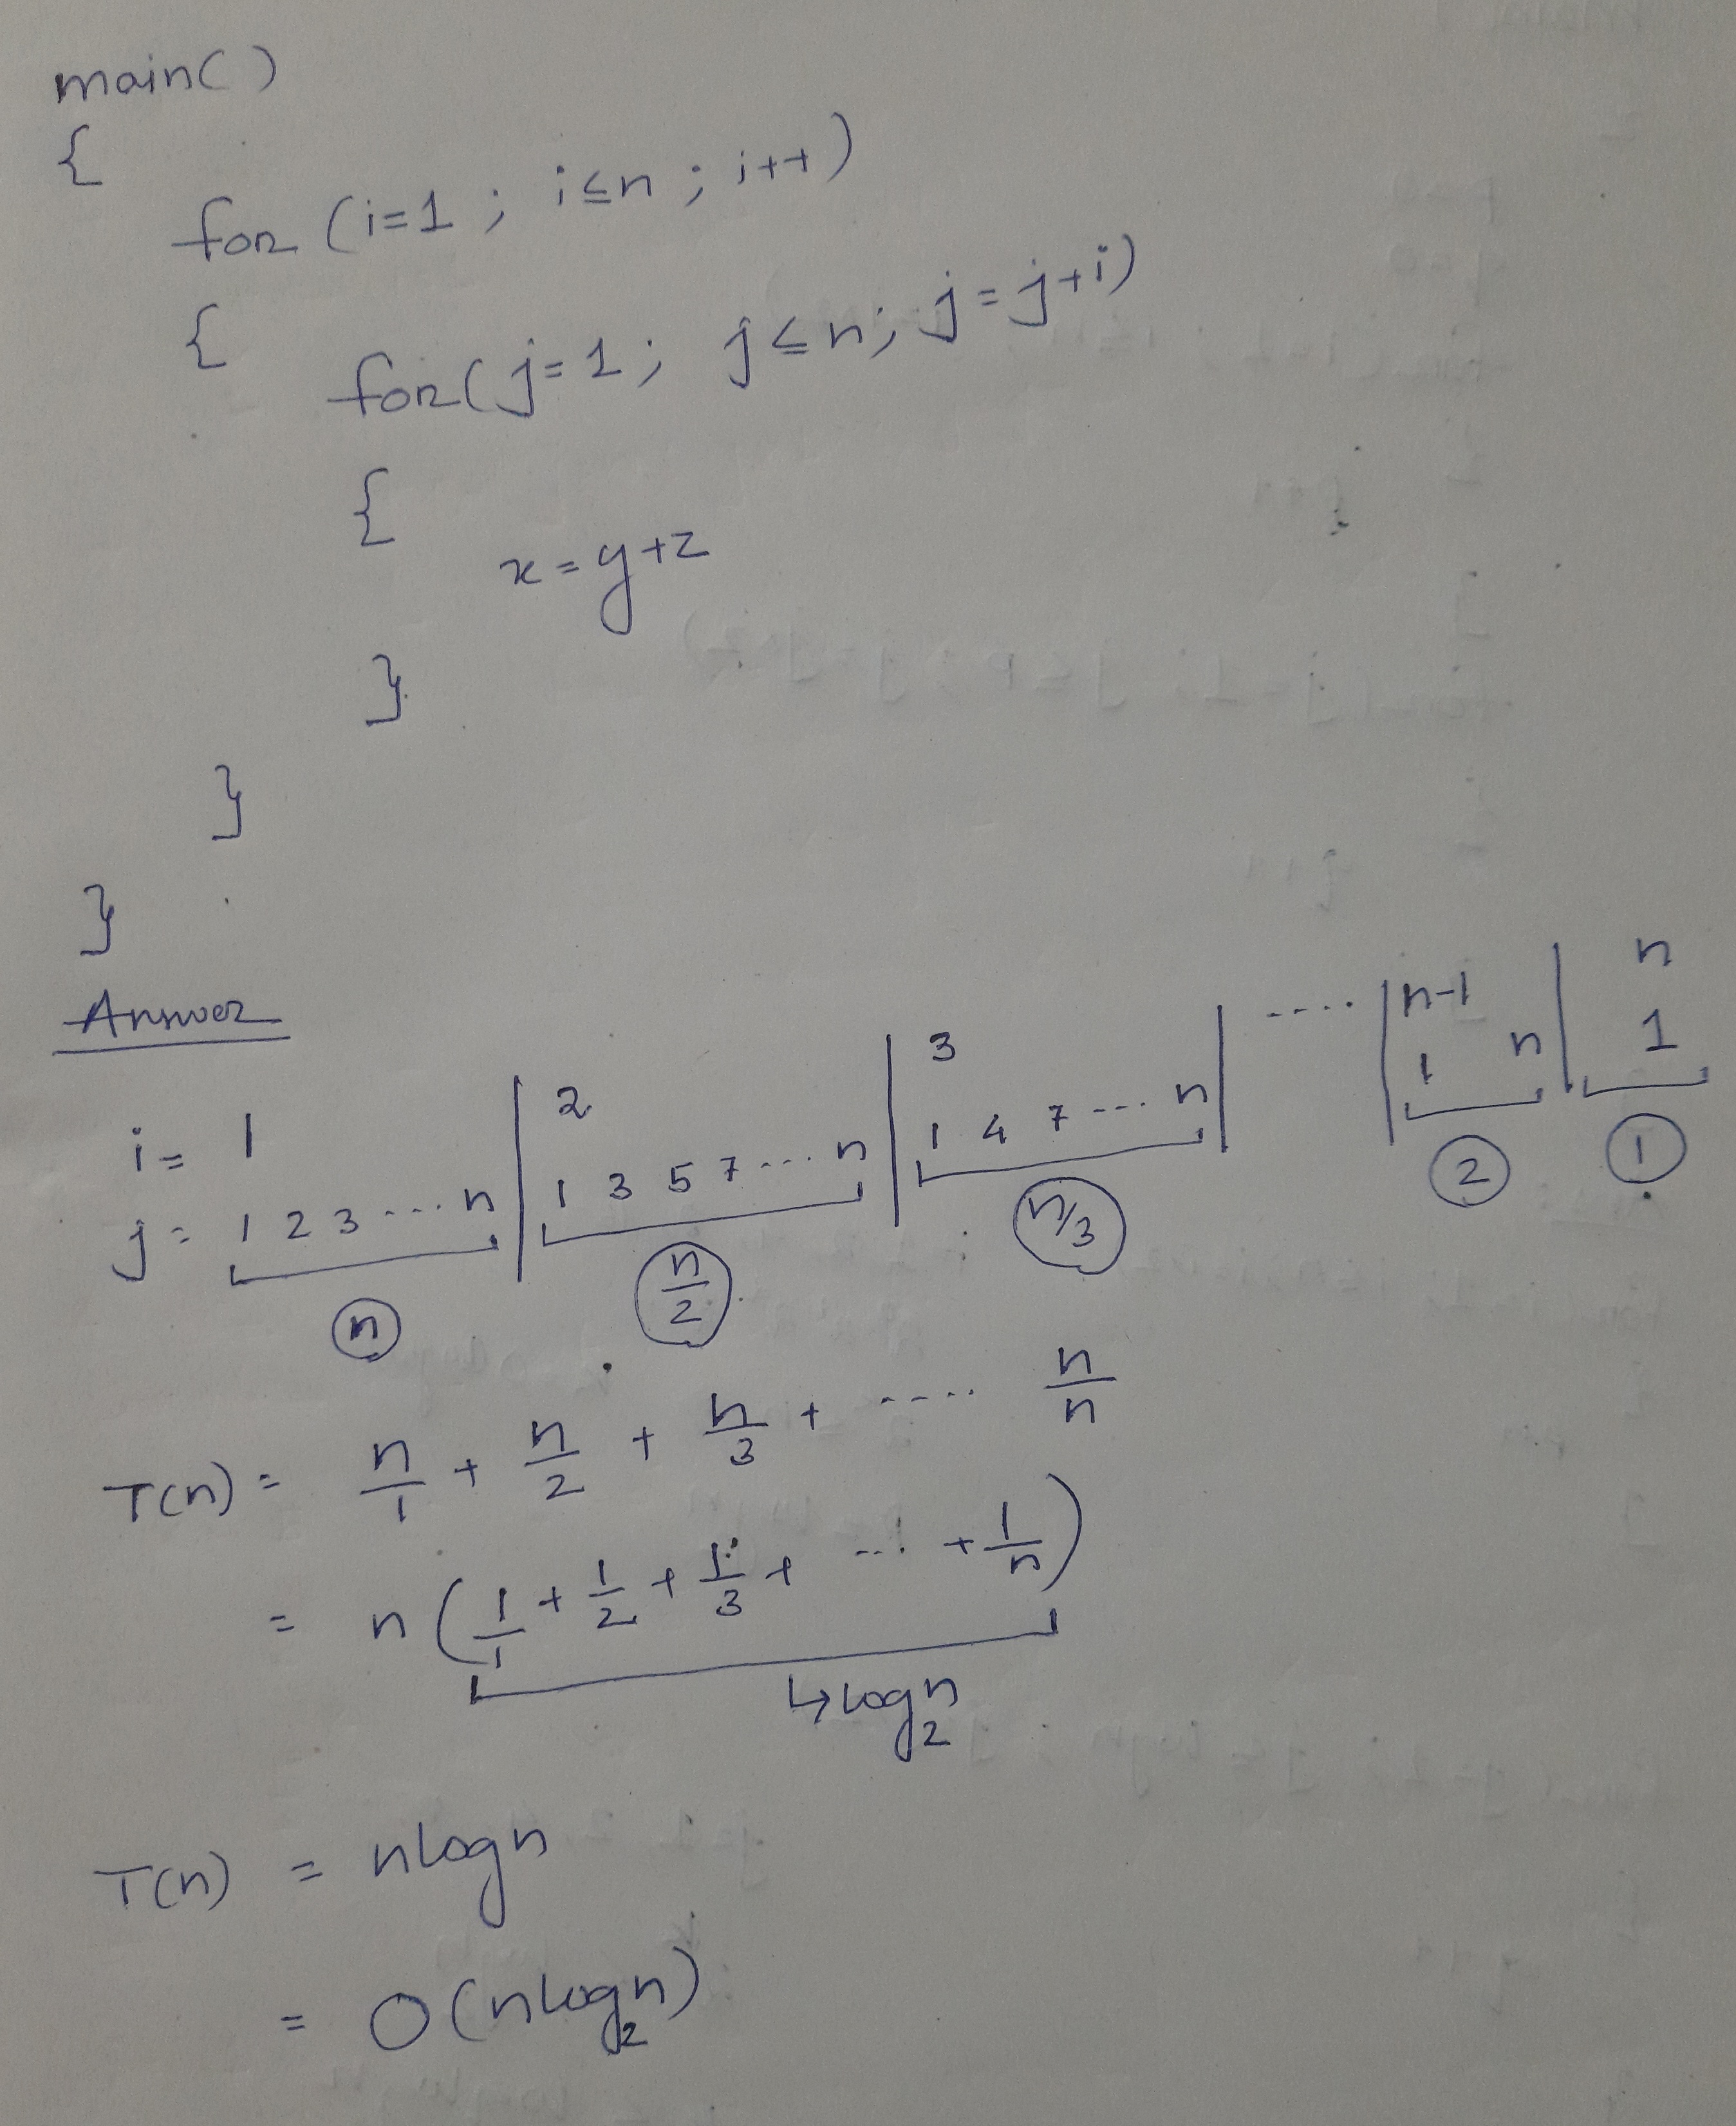 main()
{
for (i=1 ; i≤n ; i++)
{
for(j=1; j≤n; j=j+i)
{
x=y+z
}
}
}
Answer
i= 1 | 2 | 3 | .... | n-1 | n
j= 1 2 3 ... n | 1 3 5 7 ... n | 1 4 7 ... n | 1 n | 1
n n/2 n/3 2 1
T(n) = n/1 + n/2 + n/3 + .... n/n
= n(1/1 + 1/2 + 1/3 + ... + 1/n)
↳ log₂n
T(n) = nlogn
= O(nlog₂n)